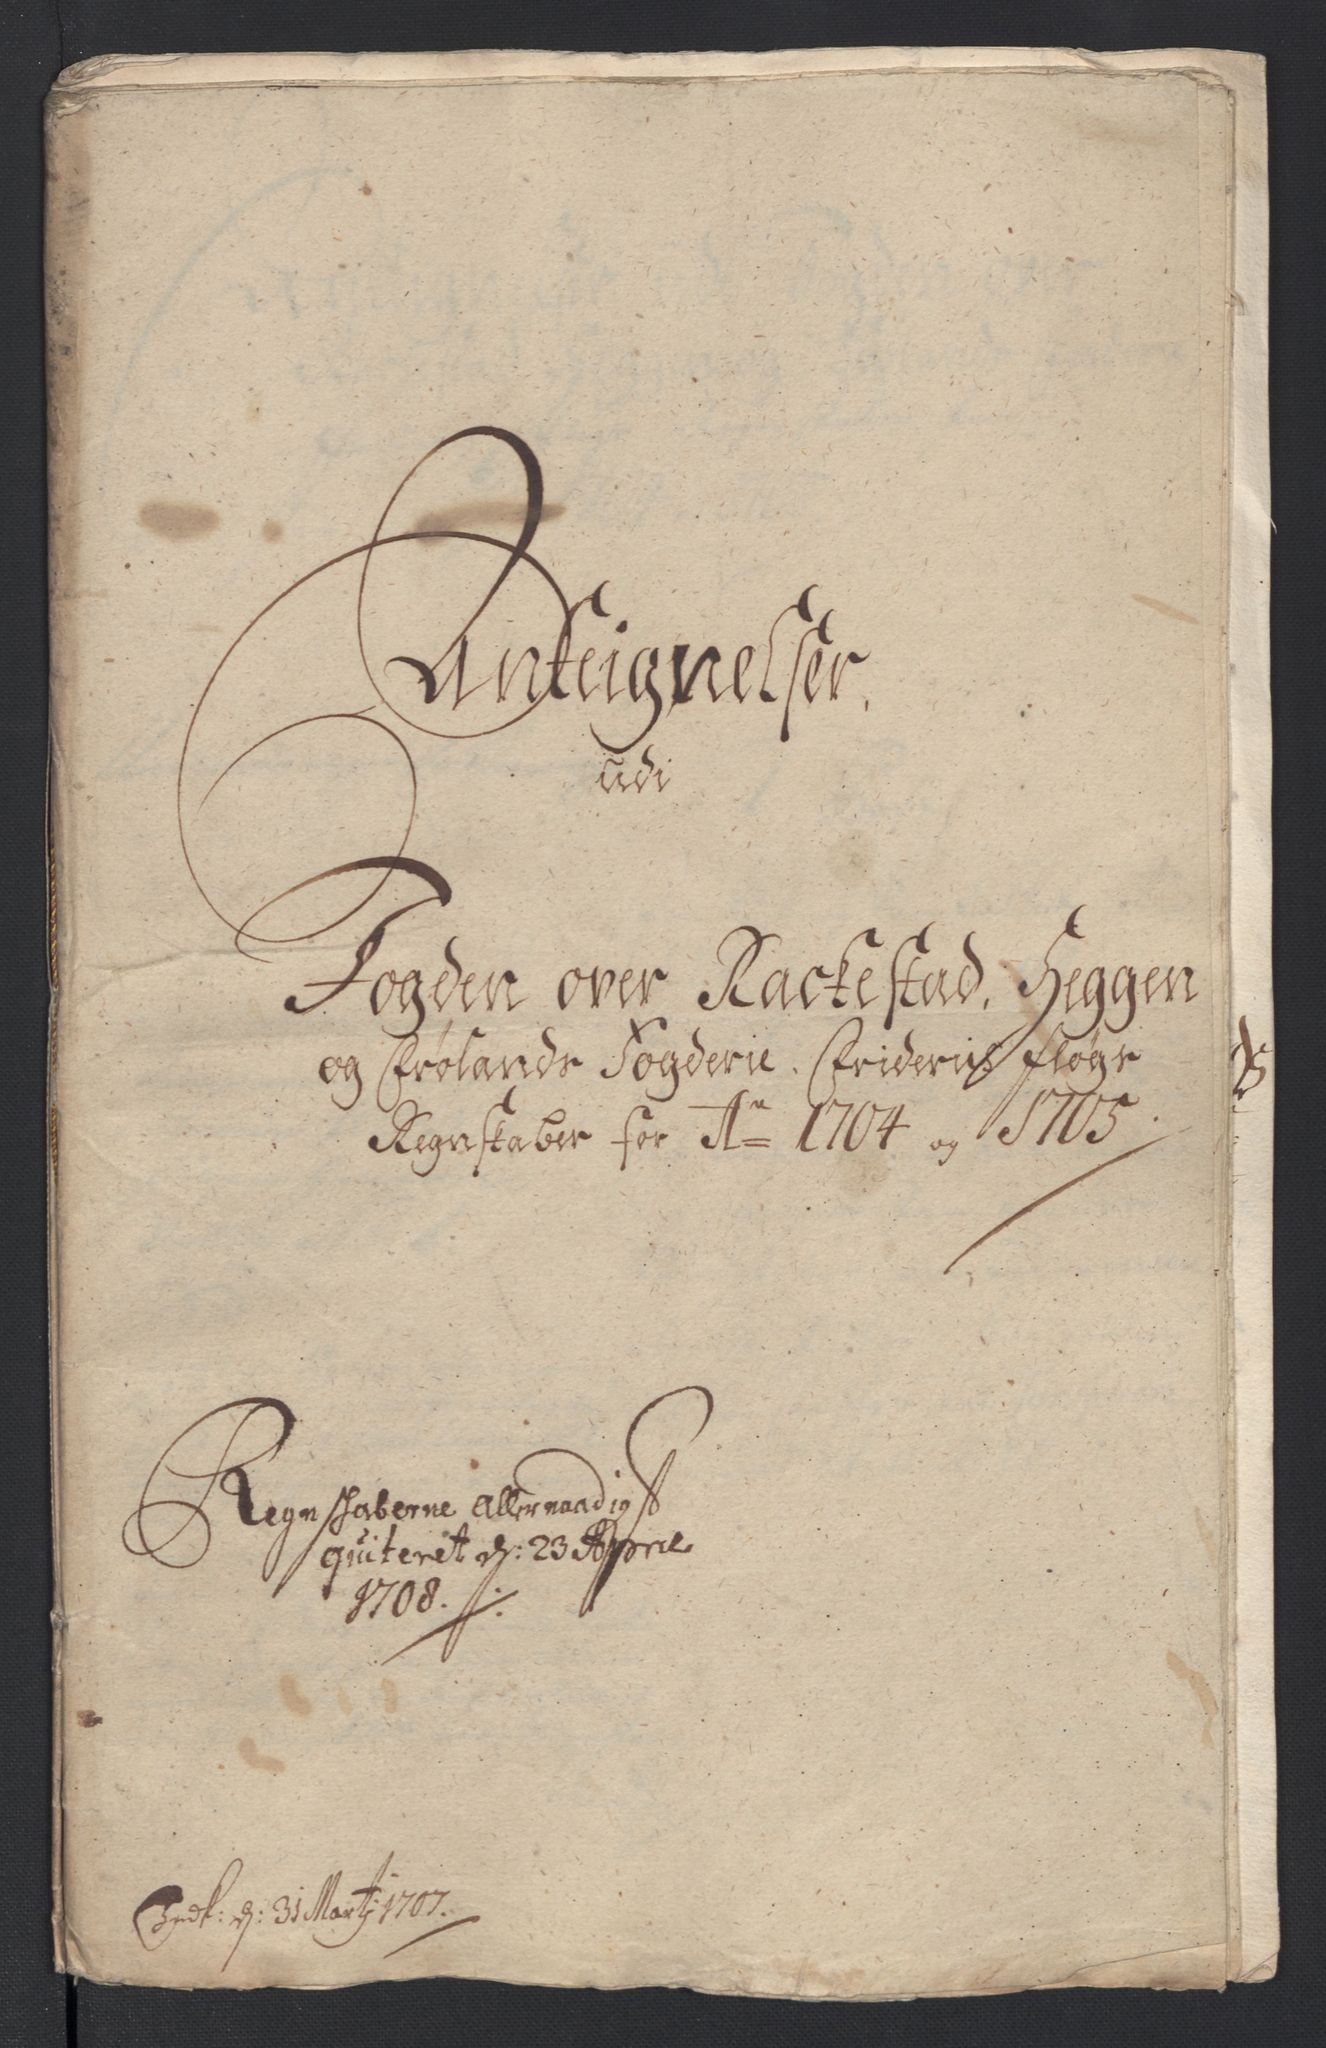 Anteignelser,
udi
Fogden over Rackestad, Heggen
og Frølands Fogderie, Friderich Fløgs
Regnskaber for Aº 1704 og 1705.
Regnskaberne allernaadigst
quiteret d: 23 Aprile
1708.
Indk: d: 31 Martj 1707.